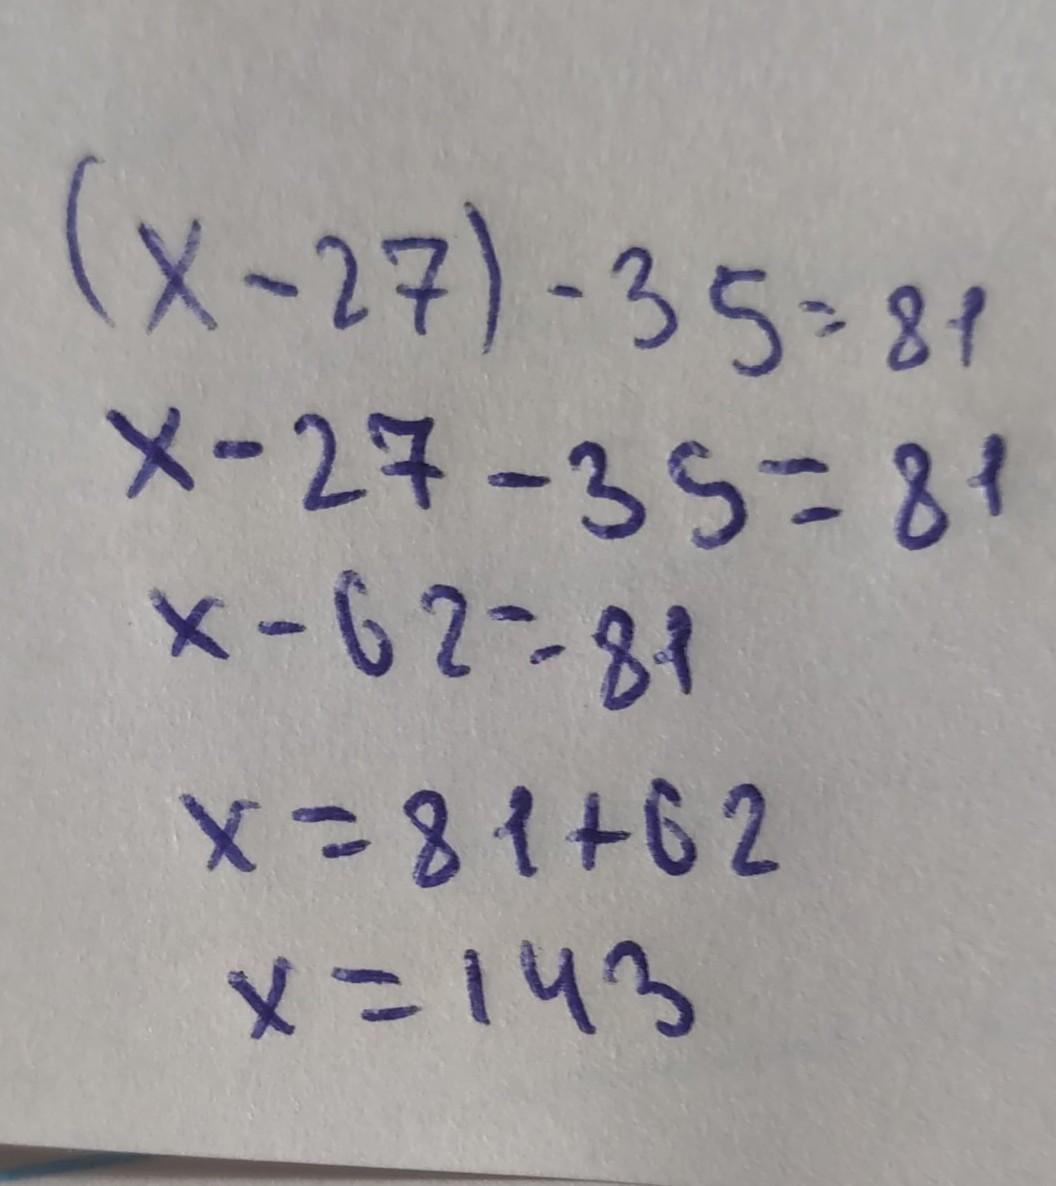 (x-27)-35=81
x-27-35=81
x-62=81
x=81+62
x=143